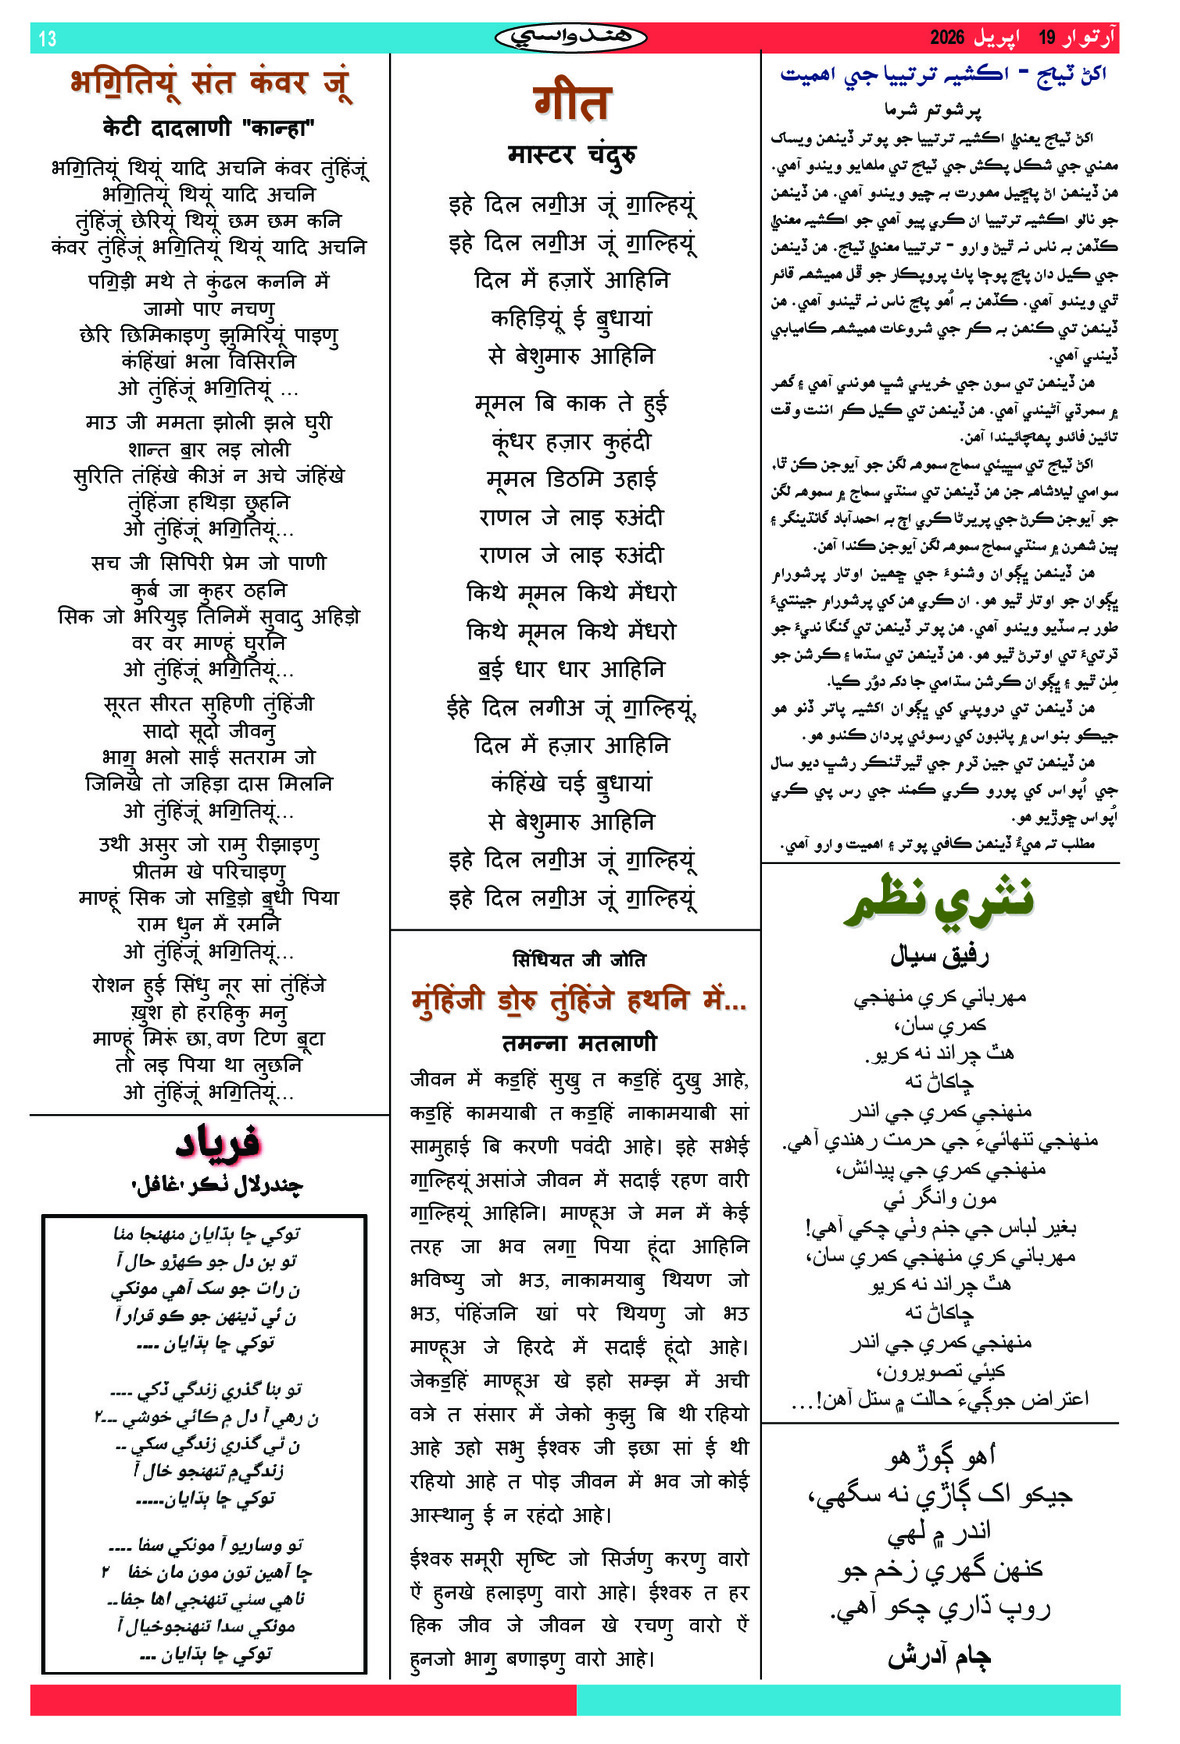 13
هندواسي
آرتوار 19 اپريل 2026
भगि॒तियूं संत कंवर जूं
केटी दादलाणी "कान्हा"
भगि॒तियूं थियूं यादि अचनि कंवर तुंहिंजूं
भगि॒तियूं थियूं यादि अचनि
तुंहिंजूं छेरियूं थियूं छम छम कनि
कंवर तुंहिंजूं भगि॒तियूं थियूं यादि अचनि
पगि॒ड़ी मथे ते कुंढल कननि में
जामो पाए नचणु
छेरि छिमिकाइणु झुमिरियूं पाइणु
कंहिंखां भला विसिरनि
ओ तुंहिंजूं भगि॒तियूं ...
माउ जी ममता झोली झले घुरी
शान्त बा॒र लइ लोली
सुरिति तंहिंखे कीअं न अचे जंहिंखे
तुंहिंजा हथिड़ा छुहनि
ओ तुंहिंजूं भगि॒तियूं...
सच जी सिपिरी प्रेम जो पाणी
कुर्ब जा कुहर ठहनि
सिक जो भरियुइ तिनिमें सुवादु अहिड़ो
वर वर माण्हूं घुरनि
ओ तुंहिंजूं भगि॒तियूं...
सूरत सीरत सुहिणी तुंहिंजी
सादो सूदो जीवनु
भागु॒ भलो साईं सतराम जो
जिनिखे तो जहिड़ा दास मिलनि
ओ तुंहिंजूं भगि॒तियूं...
उथी असुर जो रामु रीझाइणु
प्रीतम खे परिचाइणु
माण्हूं सिक जो सडि॒ड़ो बु॒धी पिया
राम धुन में रमनि
ओ तुंहिंजूं भगि॒तियूं...
रोशन हुई सिंधु नूर सां तुंहिंजे
ख़ुश हो हरहिकु मनु
माण्हूं मिरूं छा, वण टिण बू॒टा
तो लइ पिया था लुछनि
ओ तुंहिंजूं भगि॒तियूं...
فرياد
چندرلال ٺڪر 'غافل'
توکي ڇا ٻڌايان منهنجا مٺا
تو بن دل جو ڪهڙو حال آ
ن رات جو سک آهي مونکي
ن ئي ڏينهن جو ڪو قرار آ
توکي ڇا ٻڌايان ----
تو بنا گذري زندگي ڏکي ----
ن رهي آ دل ۾ ڪائي خوشي ---٢
ن ٿي گذري زندگي سکي --
زندگي۾ تنهنجو خال آ
توکي ڇا ٻڌايان-----
تو وساريو آ مونکي سفا ----
ڇا آهين تون مون مان خفا ٢
ناهي سٺي تنهنجي اها جفا--
مونکي سدا تنهنجوخيال آ
توکي ڇا ٻڌايان ---
गीत
मास्टर चंदुरु
इहे दिल लगी॒अ जूं गा॒ल्हियूं
इहे दिल लगी॒अ जूं गा॒ल्हियूं
दिल में हज़ारें आहिनि
कहिड़ियूं ई बु॒धायां
से बेशुमारु आहिनि
मूमल बि काक ते हुई
कूंधर हज़ार कुहंदी
मूमल डिठमि उहाई
राणल जे लाइ रुअंदी
राणल जे लाइ रुअंदी
किथे मूमल किथे मेंधरो
किथे मूमल किथे मेंधरो
ब॒ई धार धार आहिनि
ईहे दिल लगीअ जूं गा॒ल्हियूं,
दिल में हज़ार आहिनि
कंहिंखे चई बु॒धायां
से बेशुमारु आहिनि
इहे दिल लगी॒अ जूं गा॒ल्हियूं
इहे दिल लगी॒अ जूं गा॒ल्हियूं
सिंधियत जी जोति
मुंहिंजी डो॒रु तुंहिंजे हथनि में...
तमन्ना मतलाणी
जीवन में कड॒हिं सुखु त कड॒हिं दुखु आहे,
कड॒हिं कामयाबी त कड॒हिं नाकामयाबी सां
सामुहाई बि करणी पवंदी आहे। इहे सभेई
गा॒ल्हियूं असांजे जीवन में सदाईं रहण वारी
गा॒ल्हियूं आहिनि। माण्हूअ जे मन में केई
तरह जा भव लगा॒ पिया हूंदा आहिनि
भविष्यु जो भउ, नाकामयाबु थियण जो
भउ, पंहिंजनि खां परे थियणु जो भउ
माण्हूअ जे हिरदे में सदाईं हूंदो आहे।
जेकड॒हिं माण्हूअ खे इहो सम्झ में अची
वञे त संसार में जेको कुझु बि थी रहियो
आहे उहो सभु ईश्वरु जी इछा सां ई थी
रहियो आहे त पोइ जीवन में भव जो कोई
आस्थानु ई न रहंदो आहे।
ईश्वरु समूरी सृष्टि जो सिर्जणु करणु वारो
ऐं हुनखे हलाइणु वारो आहे। ईश्वरु त हर
हिक जीव जे जीवन खे रचणु वारो ऐं
हुनजो भागु॒ बणाइणु वारो आहे।
اکڻ ٽيڄ - اکشيہ ترتييا جي اهميت
پرشوتم شرما
اکڻ ٽيڄ يعني اکشيہ ترتييا جو پوتر ڏينهن ويساک
مهني جي شڪل پکش جي ٽيڄ تي ملهايو ويندو آهي.
هن ڏينهن اڻ پڇيل مهورت به چيو ويندو آهي. هن ڏينهن
جو نالو اکشيہ ترتييا ان ڪري پيو آهي جو اکشيہ معنيٰ
ڪڏهن به ناس نه ٿيڻ وارو - ترتييا معنيٰ ٽيڄ. هن ڏينهن
جي ڪيل دان پڃ پوڄا پاٺ پروپڪار جو ڦل هميشهه قائم
ٿي ويندو آهي. ڪڏهن به اُهو پڃ ناس نه ٿيندو آهي. هن
ڏينهن تي ڪنهن به ڪم جي شروعات هميشهه ڪاميابي
ڏيندي آهي.
هن ڏينهن تي سون جي خريدي شڀ هوندي آهي ۽ گهر
۾ سمرڌي آڻيندي آهي. هن ڏينهن تي ڪيل ڪم اننت وقت
تائين فائدو پهچائيندا آهن.
اکڻ ٽيڄ تي سڀيئي سماج سموهہ لگن جو آيوجن ڪن ٿا،
سوامي ليلاشاهہ جن هن ڏينهن تي سنڌي سماج ۾ سموهہ لگن
جو آيوجن ڪرڻ جي پريرڻا ڪري اڄ به احمدآباد گانڌينگر ۽
ٻين شهرن ۾ سنڌي سماج سموهہ لگن آيوجن ڪندا آهن.
هن ڏينهن ڀڳوان وشنوءَ جي ڇهين اوتار پرشورام
ڀڳوان جو اوتار ٿيو هو. ان ڪري هن کي پرشورام جينتيءَ
طور به سڏيو ويندو آهي. هن پوتر ڏينهن تي گنگا نديءَ جو
ڌرتيءَ تي اوترڻ ٿيو هو. هن ڏينهن تي سڌما ۽ ڪرشن جو
مِلن ٿيو ۽ ڀڳوان ڪرشن سڌامي جا دک دوُر ڪيا.
هن ڏينهن تي دروپدي کي ڀڳوان اکشيہ پاتر ڏنو هو
جيڪو بنواس ۾ پانڊون کي رسوئي پردان ڪندو هو.
هن ڏينهن تي جين ڌرم جي ٿيرٿنڪر رشڀ ديو سال
جي اُپواس کي پورو ڪري ڪمند جي رس پي ڪري
اُپواس ڇوڙيو هو.
مطلب ته هيءُ ڏينهن ڪافي پوتر ۽ اهميت وارو آهي.
نثري نظم
رفيق سيال
مهرباني ڪري منهنجي
ڪمري سان،
هٿ چراند نه ڪريو.
ڇاڪاڻ ته
منهنجي ڪمري جي اندر
منهنجي تنهائيءَ جي حرمت رهندي آهي.
منهنجي ڪمري جي پيدائش،
مون وانگر ئي
بغير لباس جي جنم وٺي چڪي آهي!
مهرباني ڪري منهنجي ڪمري سان،
هٿ چراند نه ڪريو
ڇاڪاڻ ته
منهنجي ڪمري جي اندر
ڪيئي تصويرون،
اعتراض جوڳيءَ حالت ۾ ستل آهن!...
اُهو ڳوڙهو
جيڪو اک ڳاڙي نه سگهي،
اندر ۾ لهي
ڪنهن گهري زخم جو
روپ ڌاري چڪو آهي.
ڄام آدرش